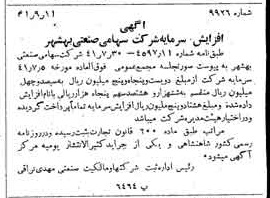 شماره ۹۹۲۶ ۴۱ر۹ر۱۱
آگهی
افزایش سرمایه شرکت سهامی صنعتی بهشهر
طبق نامه شماره ۴۵۹۷ـ۴۱ر۷ر۳۰ شرکت سهامی صنعتی
بهشهر به پیوست صورتجلسه مجمع عمومی فوق‌العاده مورخه ۴۱ر۷ر۵
سرمایه شرکت از مبلغ دویست و پنجاه و پنج میلیون ریال به سیصد و چهل
میلیون ریال منقسم به شش هزار و هشتصد سهم پنجاه هزار ریالی با نام افزایش
داده شده و مبلغ هشتاد و پنج میلیون ریال افزایش سرمایه تماماً پرداخت گردیده
و در اختیار هیئت مدیره شرکت میباشد
مراتب طبق ماده ۲۰۰ قانون تجارت ثبت رسیده و در روزنامه
رسمی کشور شاهنشاهی و یکی از جراید کثیرالانتشار یومیه مرکز
آگهی میشود
رئیس اداره ثبت شرکتها و مالکیت صنعتی مهدی نراقی
۶۴۶۴